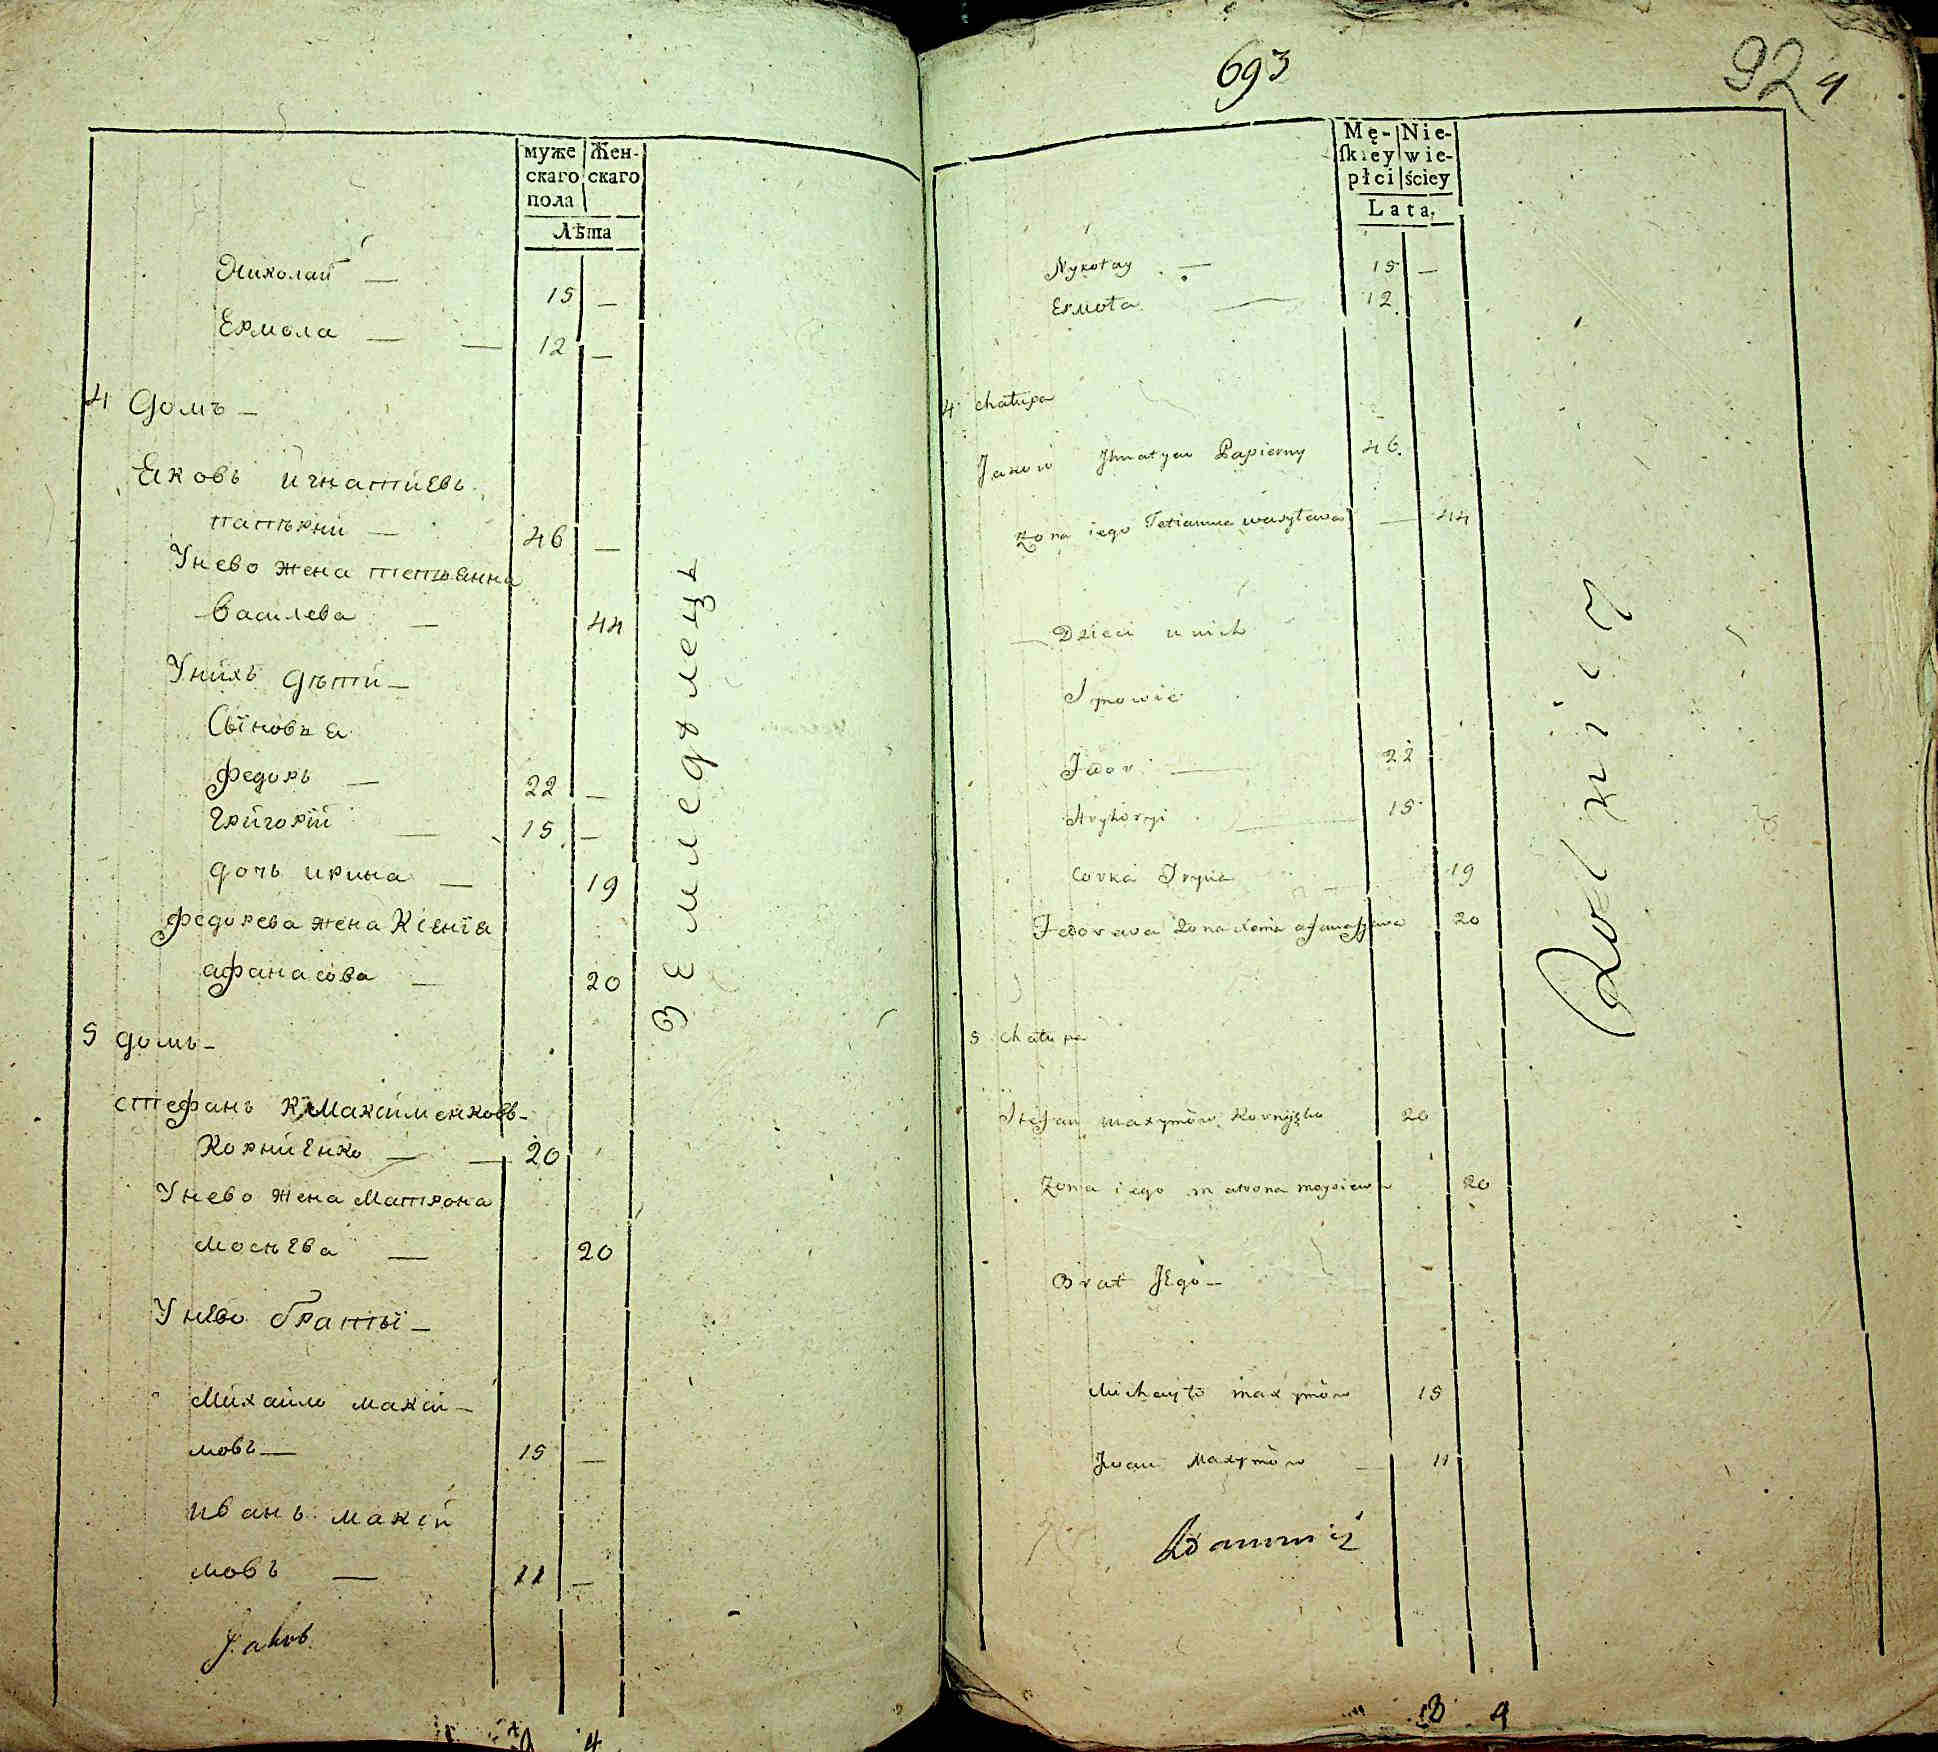 муже
скаго
пола
Жен-
скаго
Лѣта
Николай — 15 —
Ермола — — 12 —
4 Домъ —
Яковъ Игнатиевъ
папѣрний — 46 —
У нево жена тетьянна
Василева — 44
У нихъ дѣти —
Сыновья
Федоръ — 22 —
Григорий — 15 —
дочь ирина — 19
Федорева жена Ксения
афанасова — 20
5 домъ —
стефанъ Максименковъ
Корниенко — — 20
У нево жена Матрона
мосѣева — 20
У нево браты —
Михайло макси-
мовъ — 15 —
иванъ макси
мовъ — 11 —
Jakob
Земледѣлецъ
693
92 4
Mę-
skiey
płci
Nie-
wie-
ściey
Lata.
Nykołay — 15 —
Ермоła — 12
4 chałupa
Jakow Ihnatyew Papierny 46.
zona iego Tetianna wasylawa — 44
Dzieci u nich
Synowie
Fedor — 22
Hryhoryi — 15
Corka Iryna — 19
Fedorava zona xenia afanaszewa 20
5 chałupa
Stefan maxymów Korniyęko 20
zona iego matrona moysiewa 20
Brat Jego —
Michayło maxymów 15
Iwan Maxymów — 11
Rolnicz
13 9
4